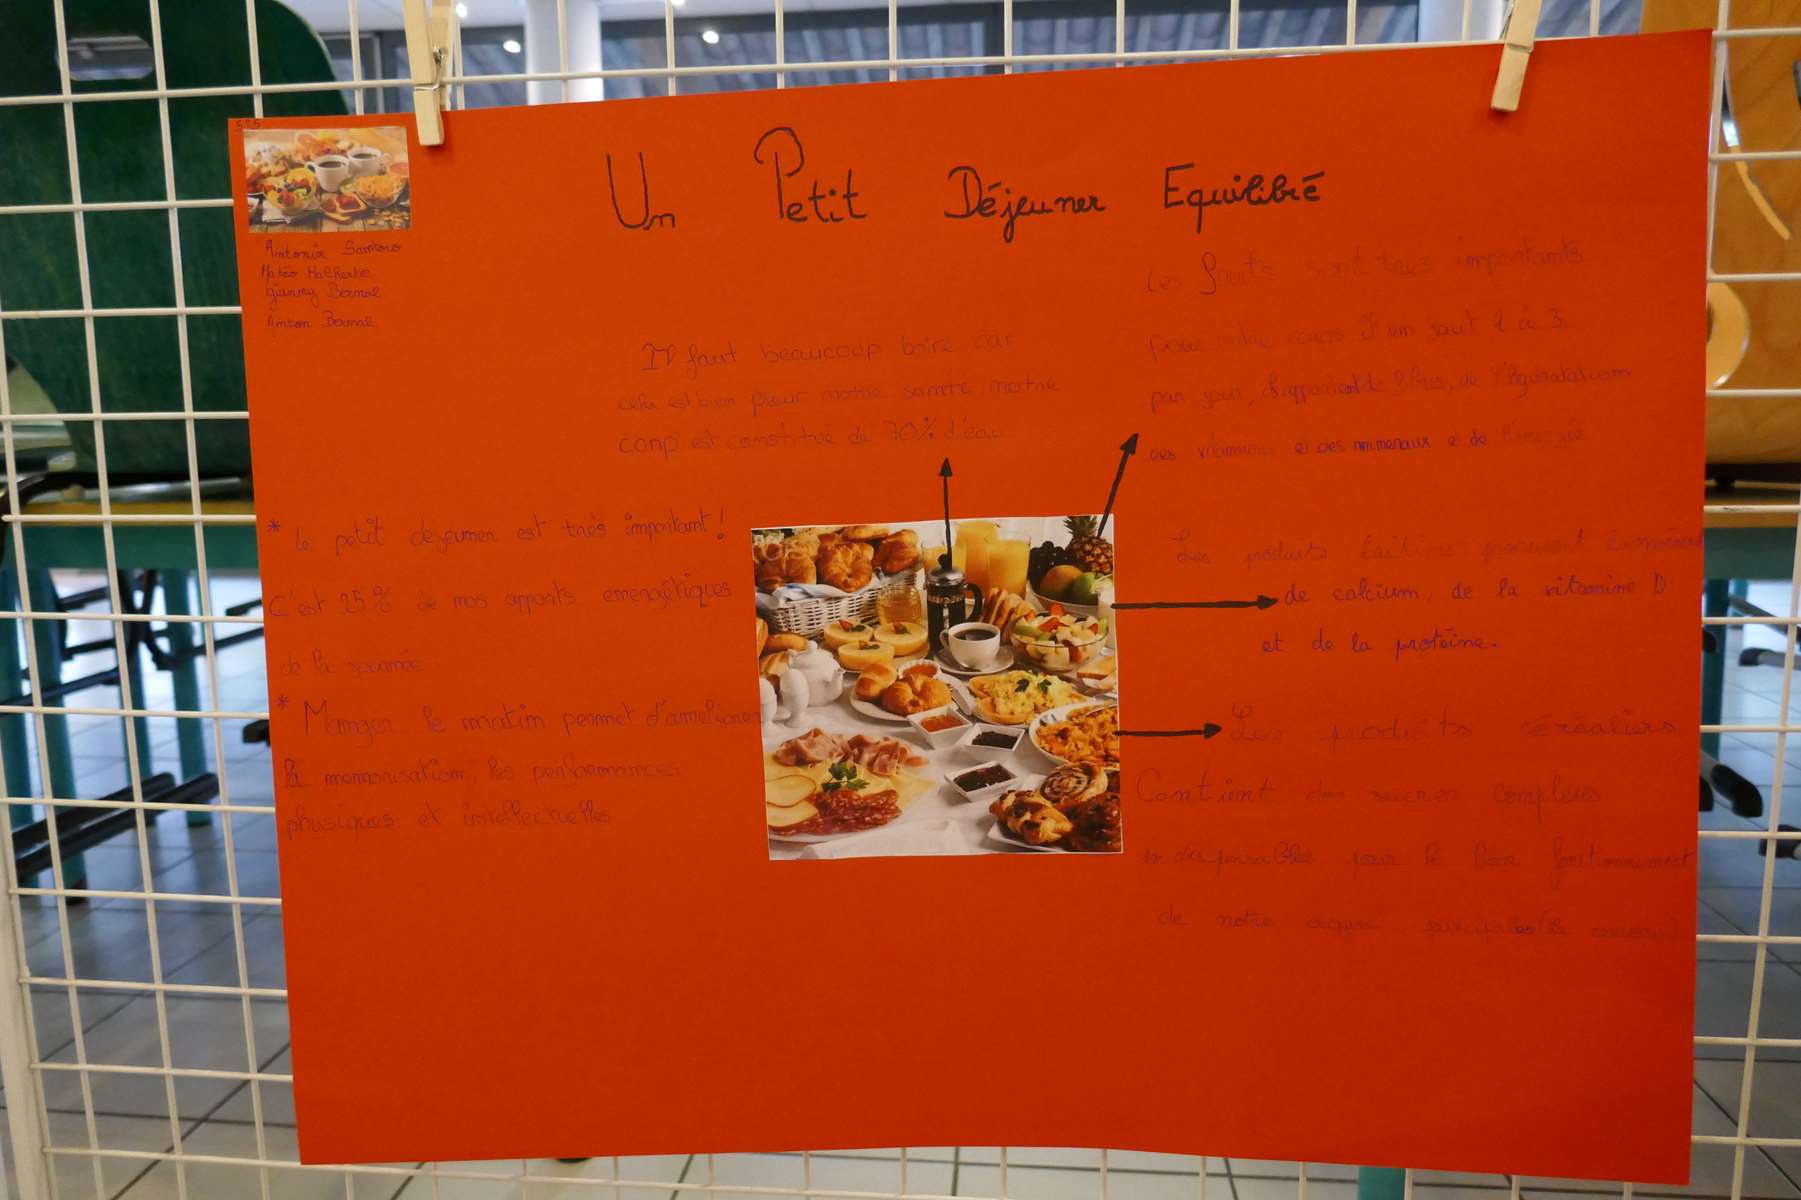 5°5
Un Petit Déjeuner Equilibré
Antonin
Matéo Malherbe
gianny Bernal
Anton Bernal
Il faut beaucoup boire car
cela est bien pour notre santé, notre
corp est constitué de 70% d'eau
Les fruits sont très importants
pour notre corps il en faut 2 à 3
par jour, de l'hydratation
des vitamines et des mineraux e de l'énergie
* le petit déjeuner est très important !
C'est 25% de nos apports energétiques
de la journée
* Manger le matin permet d'ameliorer
la memorisation, les performances
physiques et intellectuelles
Les produits laitiers
de calcium, de la vitamine D
et de la protéine.
Les produits céréaliers
Contient des sucres complexes
indispensables pour le bon
de notre